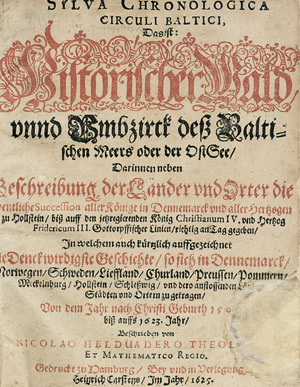 SYLVA CHRONOLOGICA
CIRCULI BALTICI,
Das ist:
Historischer Wald/
vnnd Vmbzirck deß Balti-
schen Meers oder der OstSee/
Darinnen neben
Beschreibung der Länder vnd Orter die
Succession aller Könige in Dennemarck vnd aller Hertzogen
zu Hollstein/ biß auff den jetztregierenden König Christianum IV. vnd Hertzog
Fridericum III. Gottorpffischer Linien/ richtig an Tag gegeben/
In welchem auch kürtzlich auffgezeichnet
die Denckwirdigste Geschichte/ so sich in Dennemarck/
Norwegen/ Schweden/ Lieffland/ Churland/ Preussen/ Pommern/
Mecklnburg/ Hollstein/ Schleßwig/ vnd dero anstossenden
Städten vnd Ortern zugetragen/
Von dem Jahr nach Christi Geburth
biß auffs 1623. Jahr/
Beschrieben von
NICOLAO HELDUADERO THEOL.
ET MATHEMATICO REGIO.
Gedruckt zu Hamburg/ Bey vnd in Verlegung
Heinrich Carstens/ Im Jahr/ 1625.